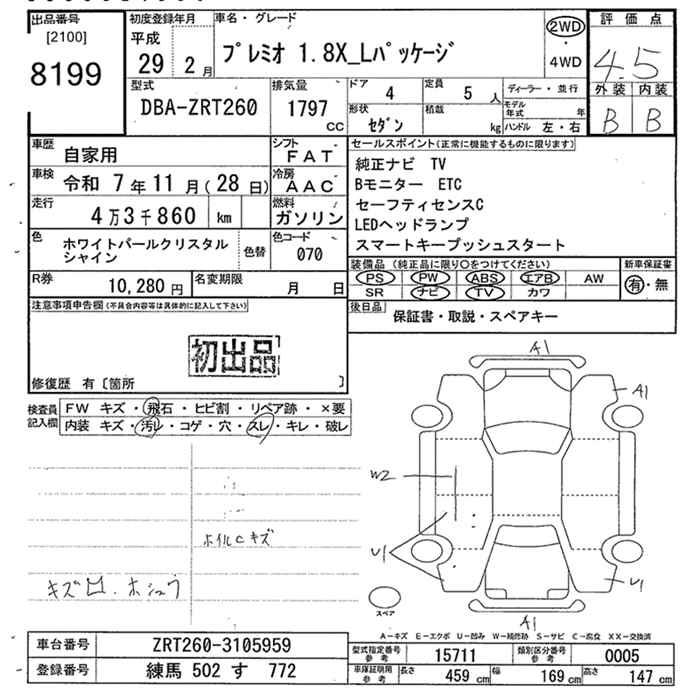 出品番号
[2100]
8199
初度登録年月
平成
29 2 月
車名・グレード
プレミオ 1.8X_Lパッケージ
2WD
・
4WD
評価点
4.5
外装 内装
B B
型式
DBA-ZRT260
排気量
1797
cc
ドア
4
定員
5 人
形状
セダン
積載
kg
ディーラー・並行
モデル
年式 年
ハンドル 左・右
車歴
自家用
シフト
FAT
車検
令和 7年 11月(28日)
冷房
AAC
走行
4万3千860 km
燃料
ガソリン
色
ホワイトパールクリスタル
シャイン
色替
色コード
070
R券
10,280 円
名変期限
月 日
セールスポイント(正常に機能するものに限ります)
純正ナビ TV
Bモニター ETC
セーフティセンスC
LEDヘッドランプ
スマートキープッシュスタート
装備品(純正品に限り○をつけてください)
PS PW ABS エアB AW
SR ナビ TV カワ
新車保証書
有・無
後日品
保証書・取説・スペアキー
注意事項申告欄(不具合内容等は具体的に記入して下さい)
初出品
修復歴 有〔箇所 〕
検査員
記入欄
FW キズ・飛石・ヒビ割・リペア跡・×要
内装 キズ・汚レ・コゲ・穴・スレ・キレ・破レ
ホイルCキズ
キズ凹 ホシュウ
A1
A1
W2
U1
U1
A1
スペア
A-キズ E-エクボ U-凹み W-補修跡 S-サビ C-腐食 XX-交換済
車台番号
ZRT260-3105959
登録番号
練馬 502 す 772
型式指定番号
参考
15711
類別区分番号
参考
0005
車庫証明用
参考
長さ
459 cm
幅
169 cm
高さ
147 cm